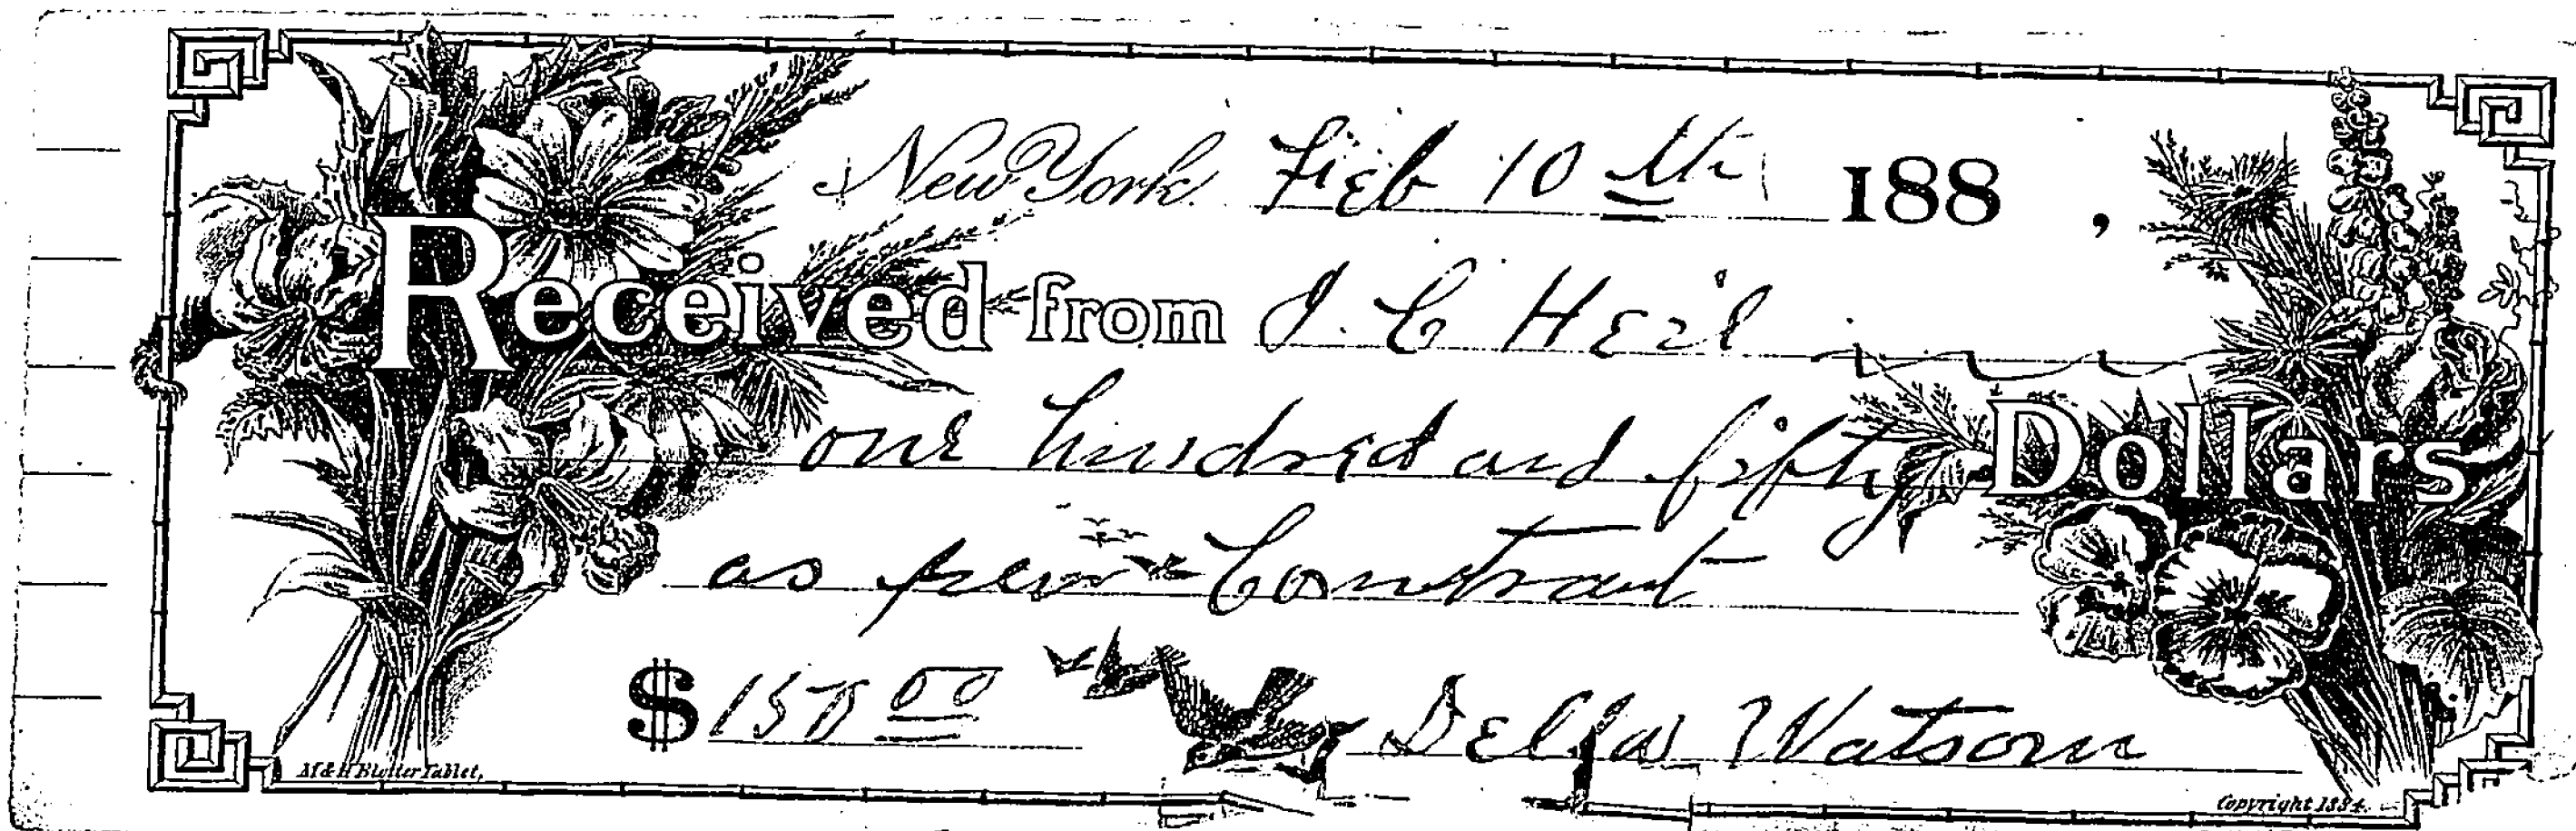 New York Feb 10th 188 ,
Received from J. C Heil
one hundred and fifty Dollars
as per Contract
$ 150 00 Della Watson
M & H Blotter Tablet,
Copyright 1884.